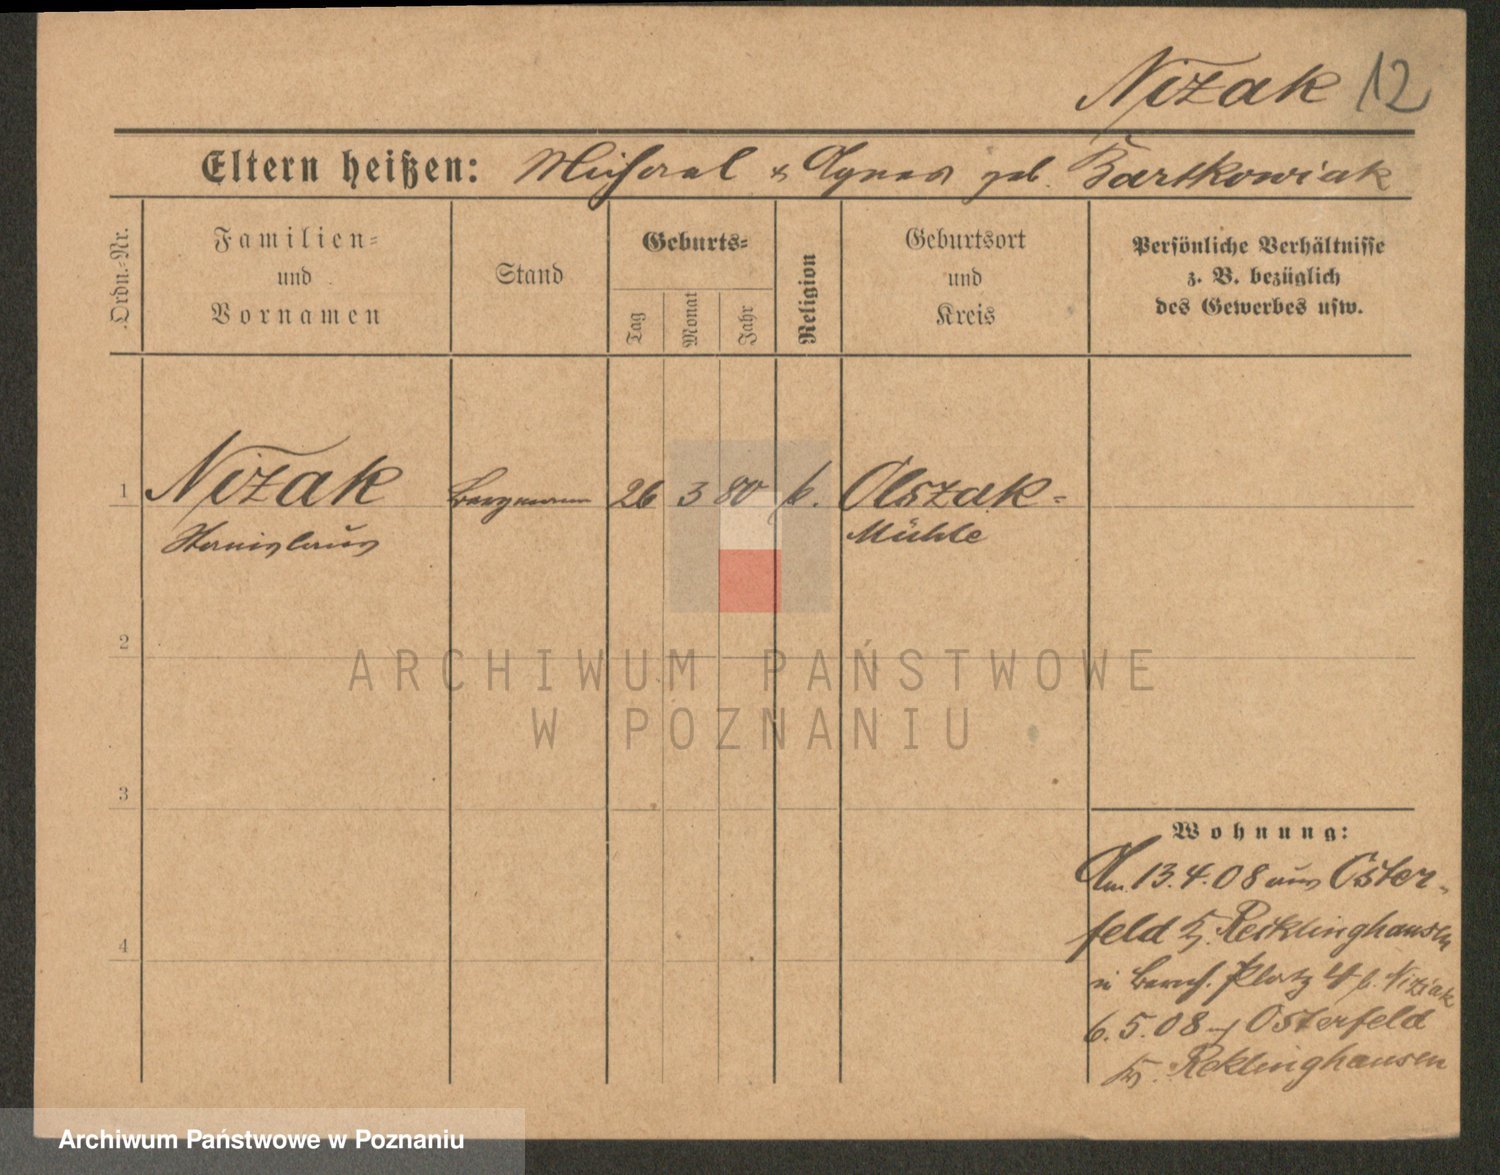 Nizak 12
Eltern heißen: Michael & Agnes geb. Bartkowiak
Ordn.-Nr.
Familien-
und
Vornamen
Stand
Geburts-
Tag
Monat
Jahr
Religion
Geburtsort
und
Kreis
Persönliche Verhältnisse
z. B. bezüglich
des Gewerbes usw.
1 Nizak Bergmann 26 3 80 k. Olszak-
Stanislaus Mühle
2
ARCHIWUM PAŃSTWOWE
W POZNANIU
3
Wohnung:
Am 13.4.08 aus Oster-
feld Kr. Recklinghausen
n Bernh. Platz 4 b. Niziak
4
6.5.08 n Osterfeld
Kr. Reklinghausen
Archiwum Państwowe w Poznaniu